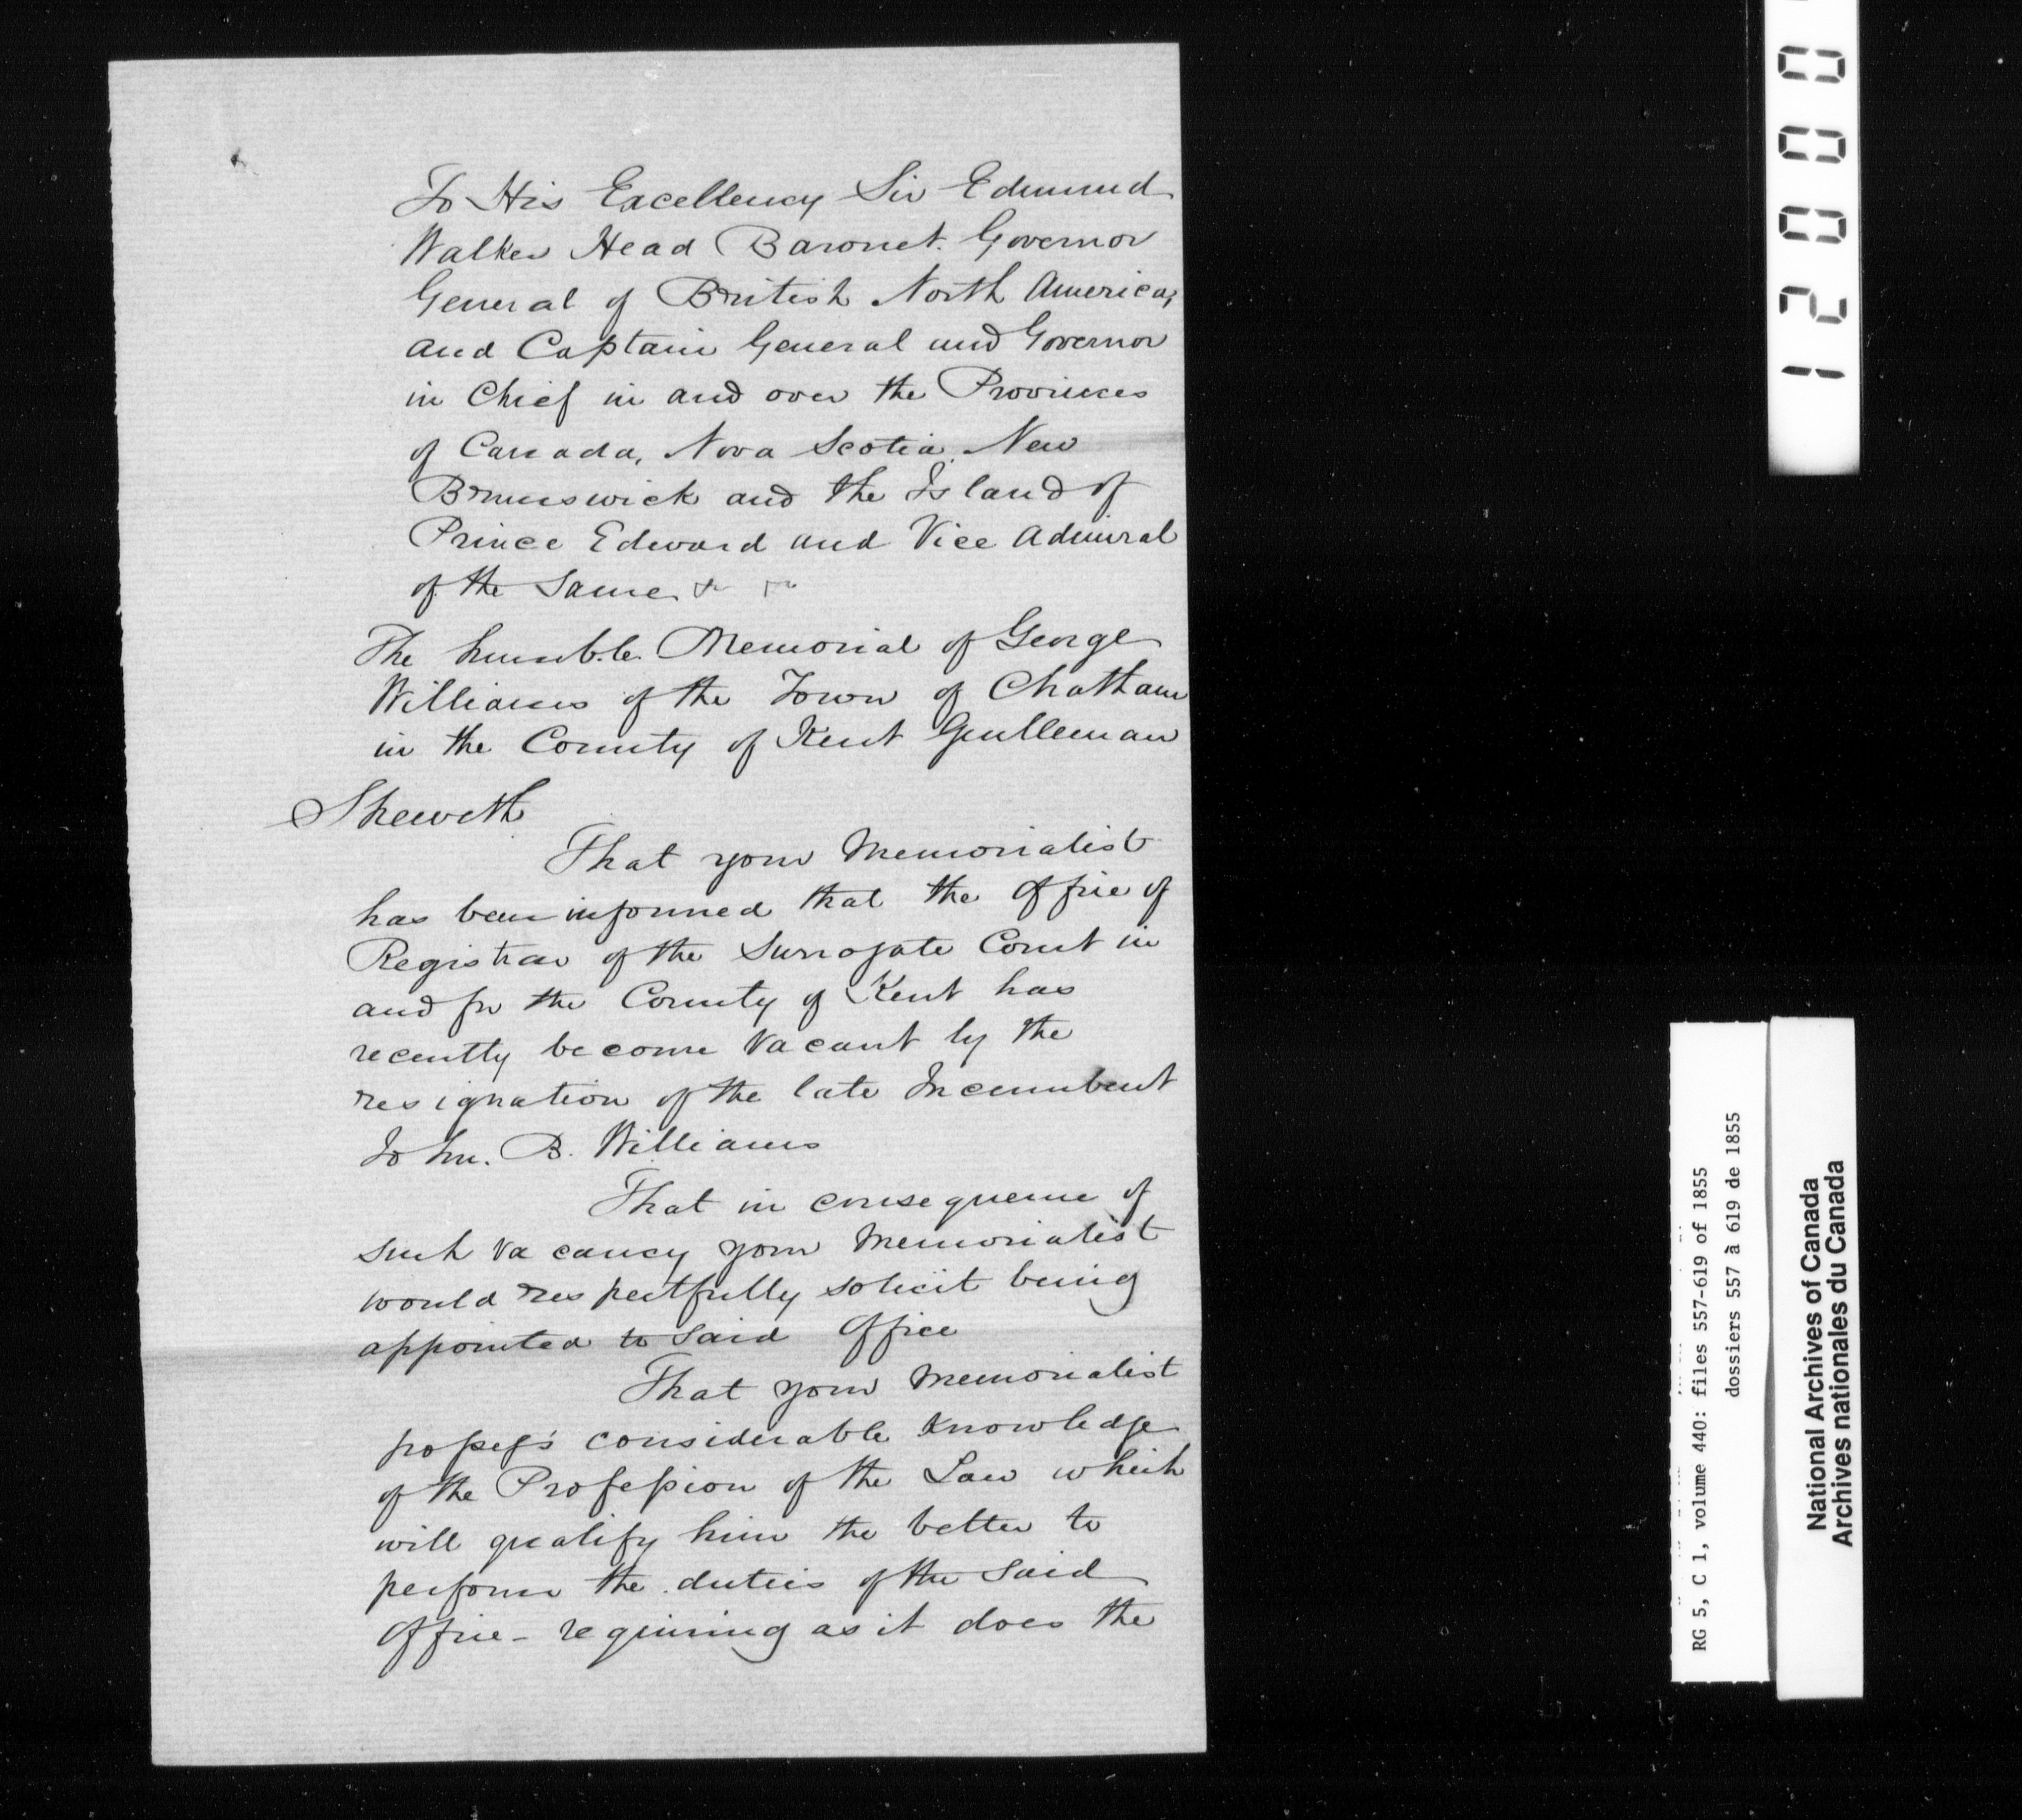 To His Excellency Sir Edmund
Walker Head Baronet. Governor
General of British North America,
and Captain General and Governor
in Chief in and over the Provinces
of Canada, Nova Scotia, New
Brunswick and the Island of
Prince Edward and Vice Admiral
of the Same &
The humble Memorial of George
Williams of the Town of Chatham
in the County of Kent Gentleman
Sheweth
That your Memorialist
has been informed that the Office of
Registrar of the Surrogate Court in
and for the County of Kent has
recently become Vacant by the
resignation of the late Incumbent
John. B. Williams
That in consequence of
such Vacancy your Memorialist
would respectfully solicit being
appointed to said Office
That your Memorialist
possess's considerable Knowledge
of the Profession of the Law which
will qualify him the better to
perform the duties of the said
Office - requiring as it does the
12000
RG 5, C 1, volume 440: files 557-619 of 1855
dossiers 557 à 619 de 1855
National Archives of Canada
Archives nationales du Canada